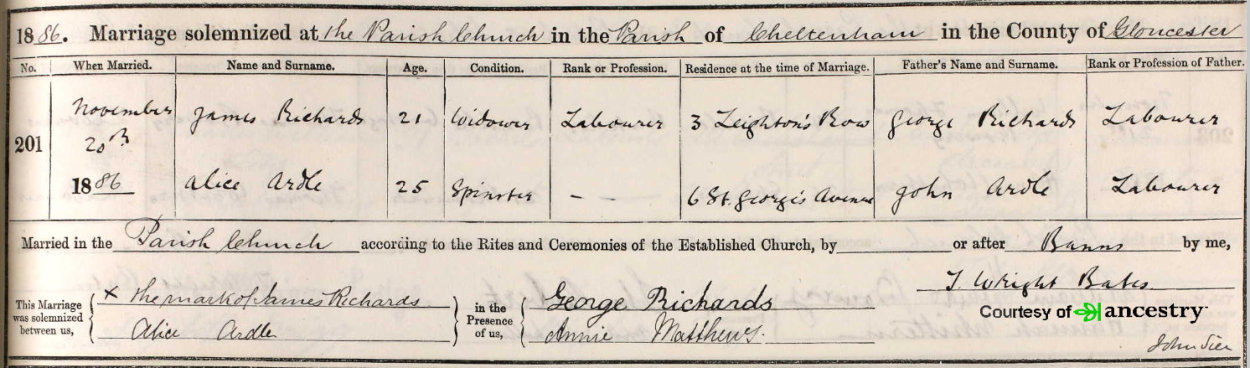 1886. Marriage solemnized at the Parish Church in the Parish of Cheltenham in the County of Gloucester
No. When Married. Name and Surname. Age. Condition. Rank or Profession. Residence at the time of Marriage. Father's Name and Surname. Rank or Profession of Father.
201 November 20th 1886 James Richards 21 Widower Labourer 3 Leighton's Row George Richards Labourer
Alice Ardle 25 Spinster – – 6 St. George's Avenue John Ardle Labourer
Married in the Parish Church according to the Rites and Ceremonies of the Established Church, by or after Banns by me,
This Marriage was solemnized between us, X the mark of James Richards in the Presence of us, George Richards T Wright Bates
Alice Ardle Annie Matthews.
Courtesy of ancestry